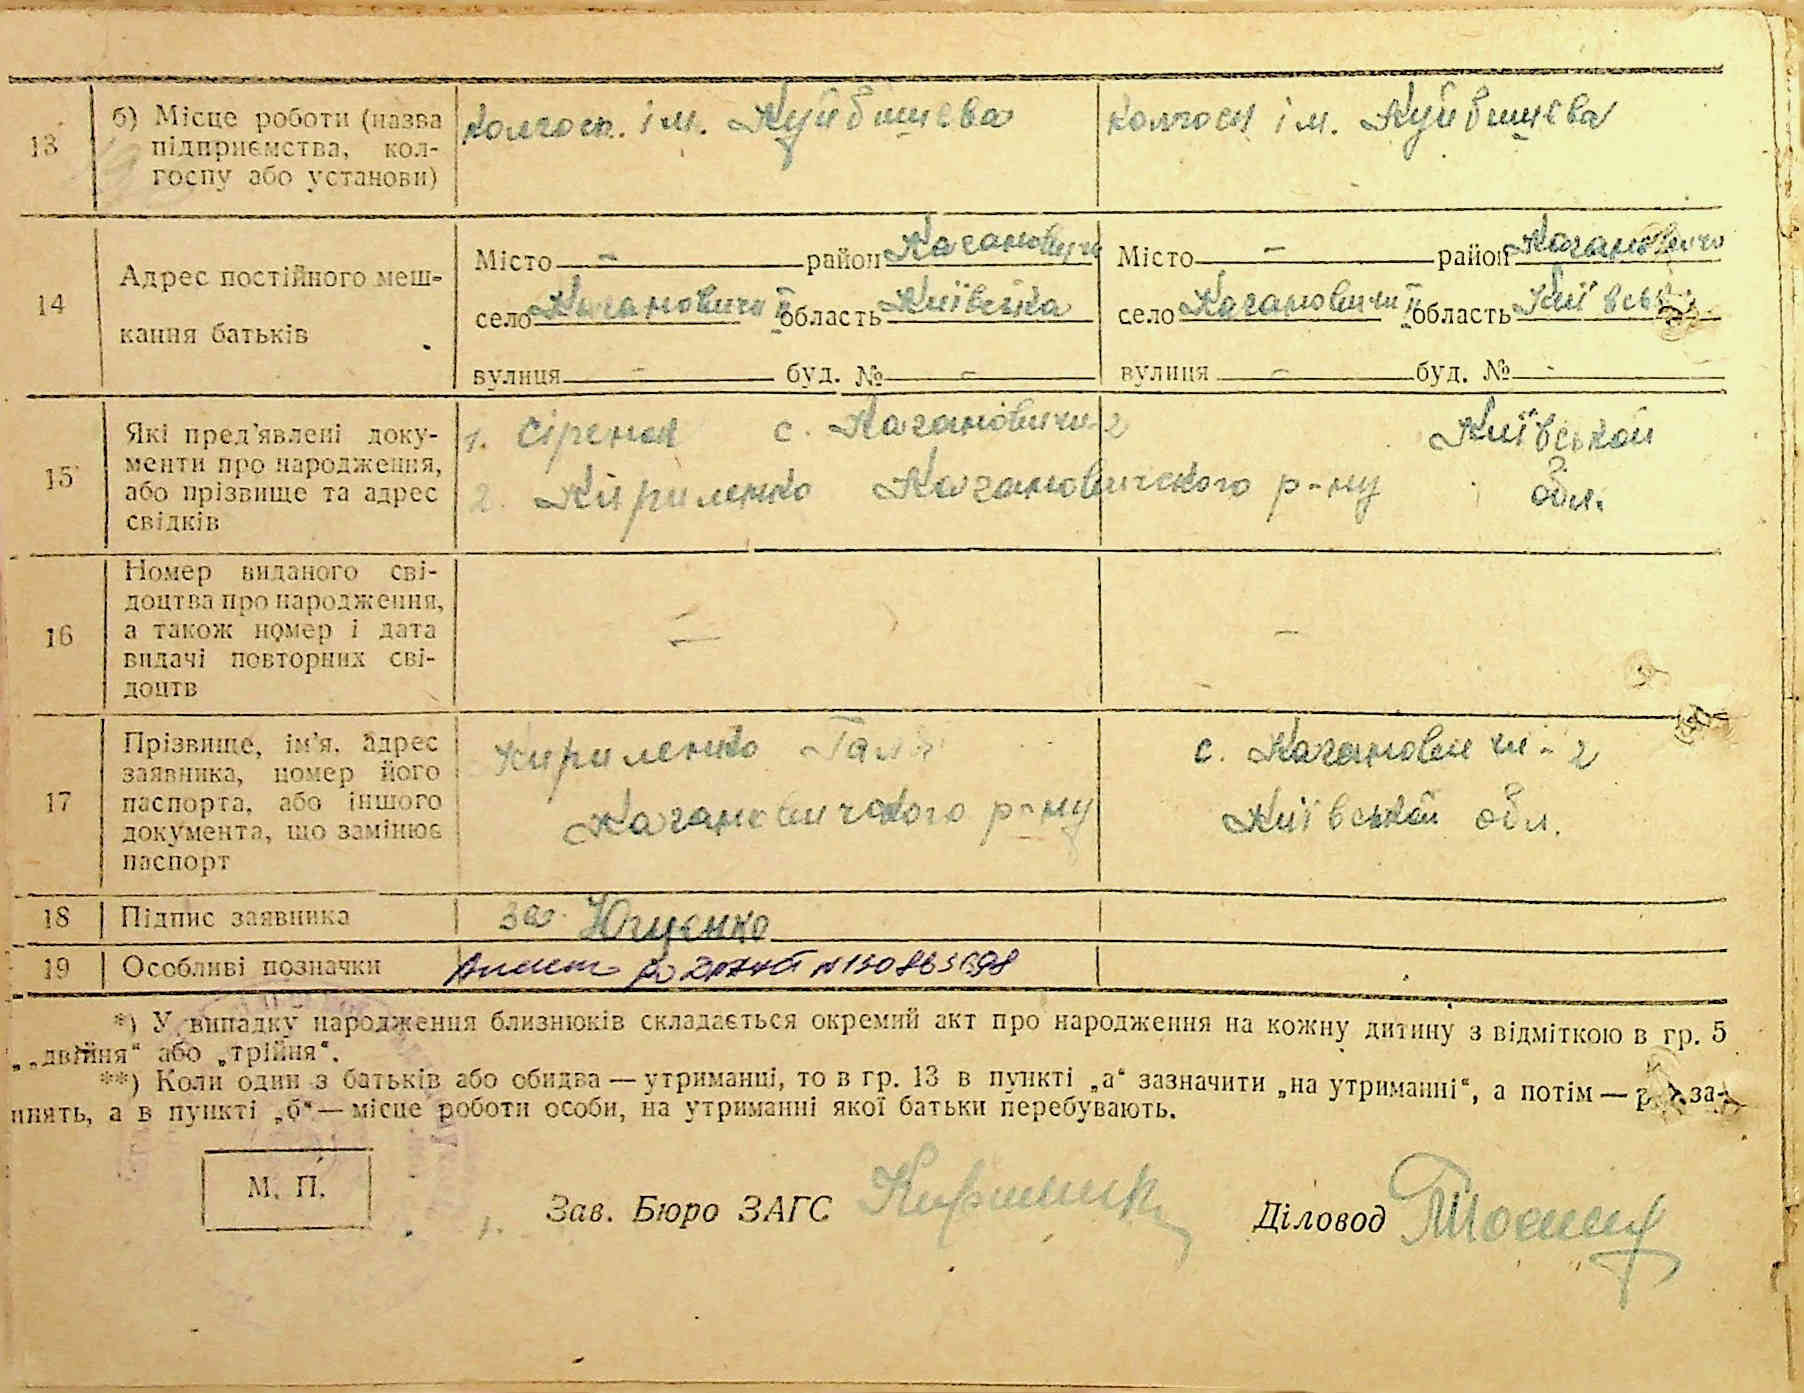 13
б) Місце роботи (назва
підприємства, кол-
госпу або установи)
колгосп. ім. Куйбишева
колгосп ім. Куйбишева
14
Адрес постійного меш-
кання батьків
Місто — район Кагановичи
село Кагановичи II область Київська
вулиця — буд. № —
Місто — район Кагановичи
село Кагановичи II область Київсь
вулиця — буд. № -
15
Які пред'явлені доку-
менти про народження,
або прізвище та адрес
свідків
1. с. Кагановичи-2 Київськой
2. Кириленко Кагановичского р-ну обл.
16
Номер виданого сві-
доцтва про народження,
а також номер і дата
видачі повторних сві-
доцтв
—
—
17
Прізвище, ім'я, адрес
заявника, номер його
паспорта, або іншого
документа, що замінює
паспорт
Кириленко Галя с. Кагановичи-2
Кагановичского р-ну Київськой обл.
18
Підпис заявника
за. Ющенко
19
Особливі позначки
*) У випадку народження близнюків складається окремий акт про народження на кожну дитину з відміткою в гр. 5
„двійня“ або „трійня“.
**) Коли один з батьків або обидва — утриманці, то в гр. 13 в пункті „а“ зазначити „на утриманні“, а потім — за-
нять, а в пункті „б“ — місце роботи особи, на утриманні якої батьки перебувають.
М. П.
Зав. Бюро ЗАГС
Діловод